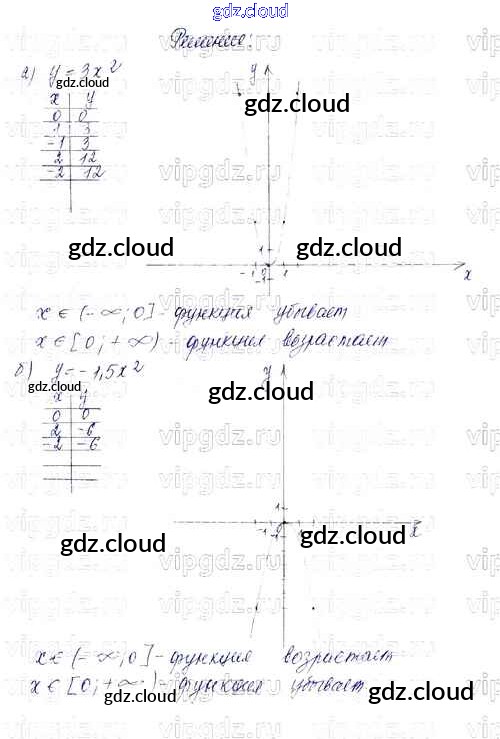 gdz.cloud
Решение:
а) y = 3x²
x y
0 0
1 3
-1 3
2 12
-2 12
y
1
-1 0 1
x
x ∈ (-∞; 0] - функция убывает
x ∈ [0; +∞) - функция возрастает
б) y = -1,5x²
x y
0 0
2 -6
-2 -6
y
1
-1 0 1
x
x ∈ (-∞; 0] - функция возрастает
x ∈ [0; +∞) - функция убывает
gdz.cloud
gdz.cloud
gdz.cloud
gdz.cloud
gdz.cloud
gdz.cloud
gdz.cloud
gdz.cloud
gdz.cloud
gdz.cloud
vipgdz.ru